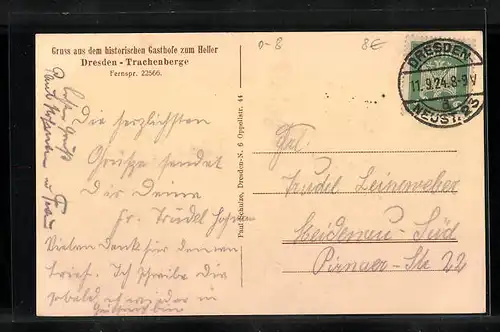 Gruss aus dem historischen Gasthofe zum Heller
Dresden - Trachenberge
Fernspr. 22566.
0-8
8€
DRESDEN
11.9.24.8-9V
NEUST. 23
Die herzlichsten
Grüße sendet
Dir Deine
Fr. Trudel
Vielen Dank für deinen
Brief. Ich schreibe dir
sobald ich wieder in
Paul Schulze, Dresden-N. 6 Oppellstr. 44
Frl.
Trudel Leineweber
Heidenau-Süd
Pirnaer-Str 22